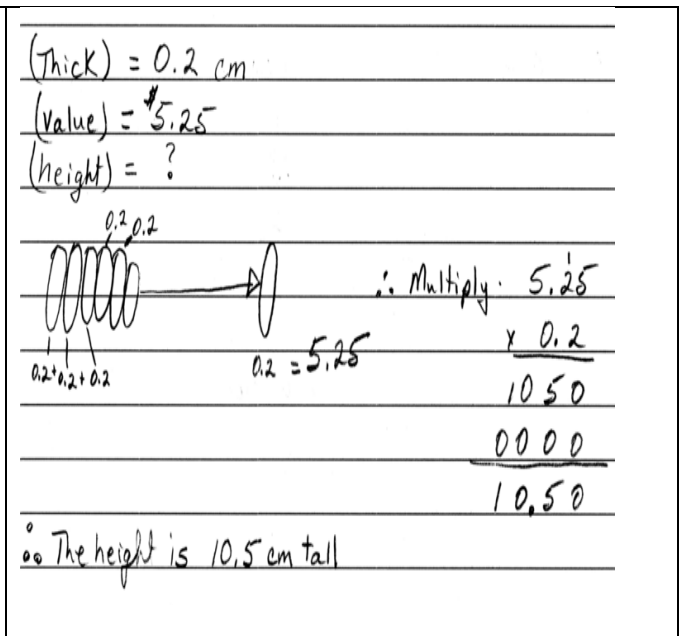 (Thick) = 0.2 cm
(value) = $5.25
(height) = ?
0.2 0.2
0.2+0.2+0.2
0.2 = 5.25
∴ Multiply. 5.25
1
x 0.2
1050
0000
10.50
∴ The height is 10.5 cm tall